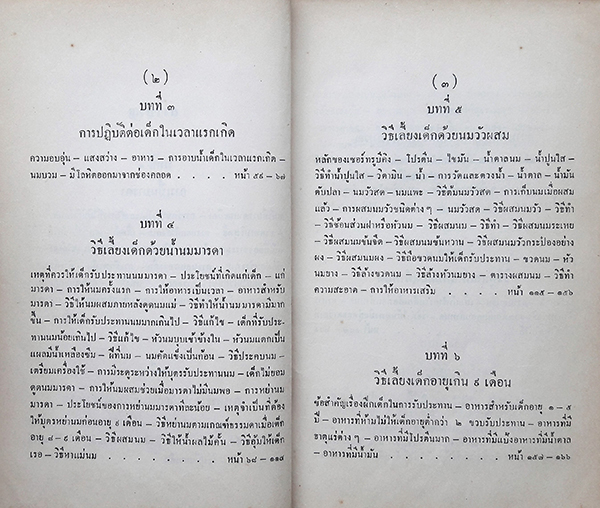 (๒)
บทที่ ๓
การปฏิบัติต่อเด็กในเวลาแรกเกิด
ความอบอุ่น – แสงสว่าง – อาหาร – การอาบน้ำเด็กในเวลาแรกเกิด –
นมบวม – มีโลหิตออกมาจากช่องคลอด . . . . หน้า ๕๙ – ๖๗
บทที่ ๔
วิธีเลี้ยงเด็กด้วยน้ำนมมารดา
เหตุที่ควรให้เด็กรับประทานนมมารดา – ประโยชน์ที่เกิดแก่เด็ก – แก่
มารดา – การให้นมครั้งแรก – การให้อาหารเป็นเวลา – อาหารสำหรับ
มารดา – วิธีให้นมผสมภายหลังดูดนมแม่ – วิธีทำให้น้ำนมมารดามีมาก
ขึ้น – การให้เด็กรับประทานนมมากเกินไป – วิธีแก้ไข – เด็กที่รับประ-
ทานนมน้อยเกินไป – วิธีแก้ไข – หัวนมบุบเข้าข้างใน – หัวนมแตกเป็น
แผลมีน้ำเหลืองซึม – ฝีที่นม – นมคัดแข็งเป็นก้อน – วิธีประคบนม –
เตรียมเครื่องใช้ – การมีระดูระหว่างให้บุตรรับประทานนม – เด็กไม่ยอม
ดูดนมมารดา – การให้นมผสมช่วยเมื่อมารดาไม่มีนมพอ – การหย่านม
มารดา – ประโยชน์ของการหย่านมมารดาทีละน้อย – เหตุจำเป็นที่ต้อง
ให้บุตรหย่านมก่อนอายุ ๙ เดือน – วิธีหย่านมตามเกณฑ์ธรรมดาเมื่อเด็ก
อายุ ๘ – ๙ เดือน – วิธีผสมนม – วิธีให้น้ำผลไม้คั้น – วิธีอุ้มให้เด็ก
เรอ – วิธีหาแม่นม . . . . . . หน้า ๖๘ – ๑๑๙
(๓)
บทที่ ๕
วิธีเลี้ยงเด็กด้วยนมวัวผสม
หลักของเซอร์ทรูบีคิง – โปรตีน – ไขมัน – น้ำตาลนม – น้ำปูนใส –
วิธีทำน้ำปูนใส – วิตามิน – น้ำ – การวัดและตวงน้ำ – น้ำตาล – น้ำมัน
ตับปลา – นมวัวสด – นมแพะ – วิธีต้มนมวัวสด – การเก็บนมเมื่อผสม
แล้ว – การผสมนมวัวชนิดต่าง ๆ – นมวัวสด – วิธีผสมนมวัว – วิธีทำ
– วิธีช้อนส่วนฝาหรือหัวนม – วิธีผสมนม – วิธีทำ – วิธีผสมนมระเหย
– วิธีผสมนมข้นจืด – วิธีผสมนมข้นหวาน – วิธีผสมนมวัวกระป๋องอย่าง
ผง – วิธีผสมนมผง – วิธีถือขวดนมให้เด็กรับประทาน – ขวดนม – หัว
นมยาง – วิธีล้างขวดนม – วิธีล้างหัวนมยาง – ตารางผสมนม – วิธีทำ
ความสะอาด – การให้อาหารเสริม . . . . . หน้า ๑๑๕ – ๑๕๖
บทที่ ๖
วิธีเลี้ยงเด็กอายุเกิน ๙ เดือน
ข้อสำคัญเรื่องฝึกเด็กในการรับประทาน – อาหารสำหรับเด็กอายุ ๑ – ๕
ปี – อาหารที่ห้ามไม่ให้เด็กอายุต่ำกว่า ๒ ขวบรับประทาน – อาหารที่มี
ธาตุแร่ต่าง ๆ – อาหารที่มีโปรตีนมาก – อาหารที่มีแป้งอาหารที่มีน้ำตาล
– อาหารที่มีน้ำมัน . . . . . หน้า ๑๕๗ – ๑๖๖